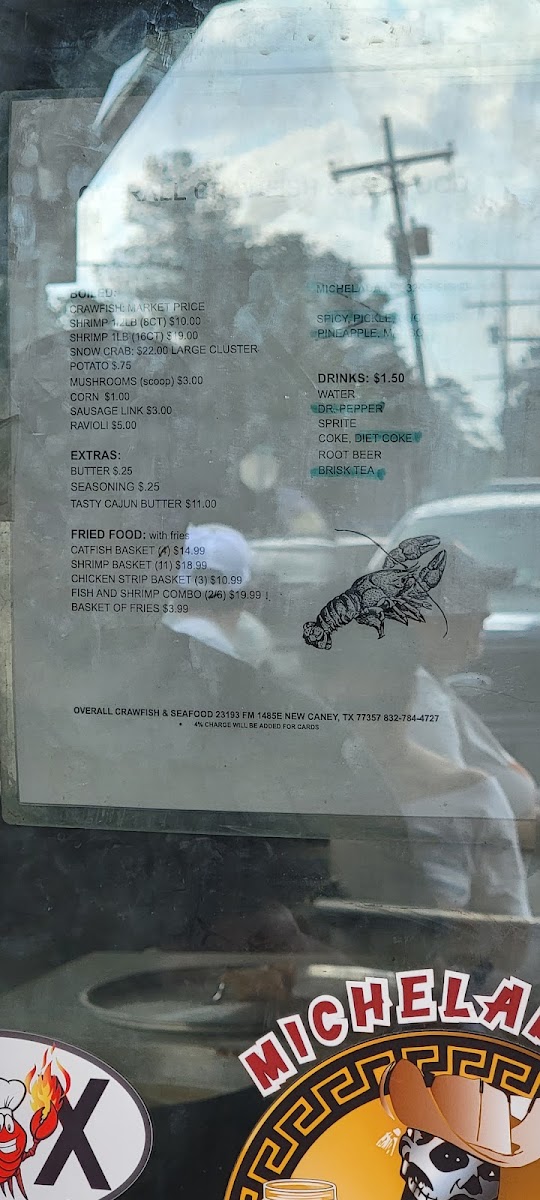 BOILED:
CRAWFISH: MARKET PRICE
SHRIMP 1/2LB (8CT) $10.00
SHRIMP 1LB (16CT) $19.00
SNOW CRAB: $22.00 LARGE CLUSTER
POTATO $.75
MUSHROOMS (scoop) $3.00
CORN $1.00
SAUSAGE LINK $3.00
RAVIOLI $5.00
EXTRAS:
BUTTER $.25
SEASONING $.25
TASTY CAJUN BUTTER $11.00
FRIED FOOD: with fries
CATFISH BASKET (4) $14.99
SHRIMP BASKET (11) $18.99
CHICKEN STRIP BASKET (3) $10.99
FISH AND SHRIMP COMBO (2/6) $19.99
BASKET OF FRIES $3.99
SPICY, PICKLE,
PINEAPPLE,
DRINKS: $1.50
WATER
DR. PEPPER
SPRITE
COKE, DIET COKE
ROOT BEER
BRISK TEA
OVERALL CRAWFISH & SEAFOOD 23193 FM 1485E NEW CANEY, TX 77357 832-784-4727
• 4% CHARGE WILL BE ADDED FOR CARDS
MICHELA
X